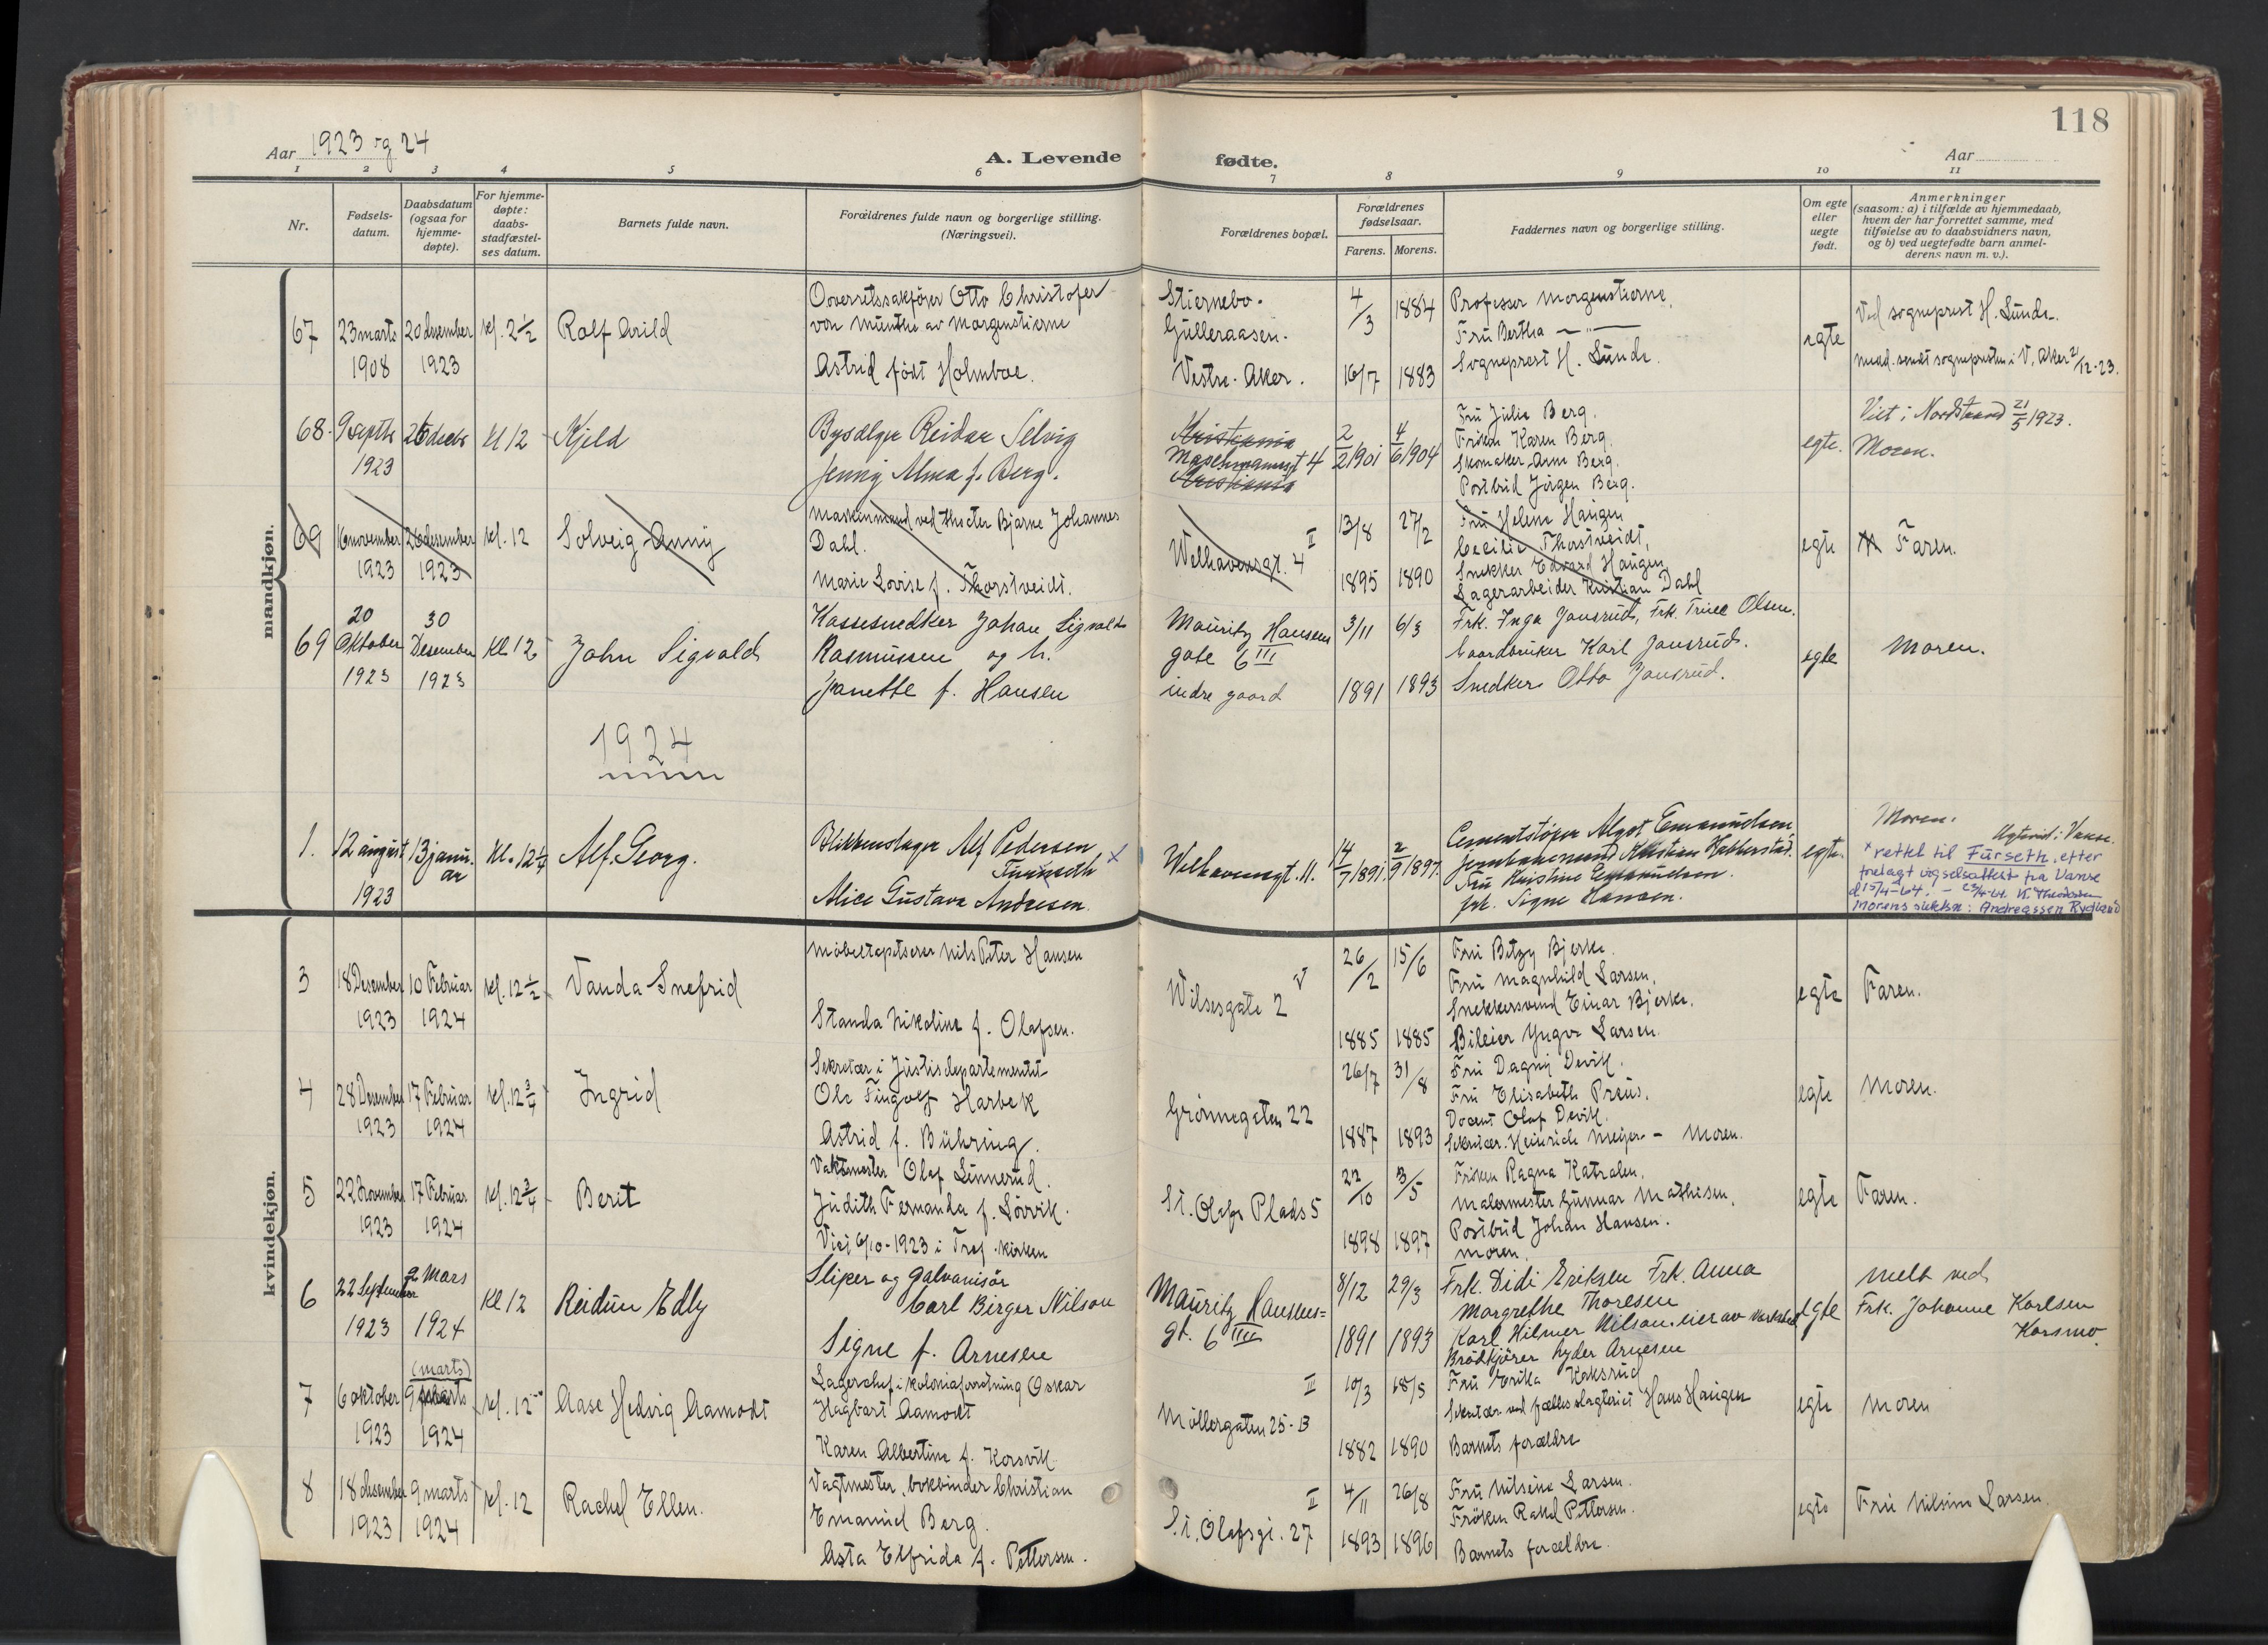 118
Aar 1923 og 24
A. Levende fødte.
Aar
1 2 3 4 5 6 7 8 9 10 11
Nr.
Fødsels-
datum.
Daabsdatum
(ogsaa for
hjemme-
døpte).
For hjemme-
døpte:
daabs-
stadfæstel-
ses datum.
Barnets fulde navn.
Forældrenes fulde navn og borgerlige stilling.
(Næringsvei).
Forældrenes bopæl.
Forældrenes
fødselsaar.
Farens. Morens.
Faddernes navn og borgerlige stilling.
Om egte
eller
uegte
født.
Anmerkninger
(saasom: a) i tilfælde av hjemmedaab,
hvem der har forrettet samme, med
tilføielse av to daabsvidners navn,
og b) ved uegtefødte barn anmel-
derens navn m. v.).
mandkjøn.
67
23 marts
1908
20 desember
1923
Kl. 2 1/2
Rolf Arild
Overretssakfører Otto Christofer
von Munthe av Morgenstierne
Astrid født Holmboe.
Stiernebo.
Gulleraasen.
Vestre. Aker.
4/3
1884
16/7 1883
Professor Morgenstierne,
Fru Bertha — " —
Sogneprest H. Lunde.
egte
Ved sogneprest H. Lunde.
Medd. sendt sognepresten i V. Aker 2/12-23.
68.
9 septbr
1923
26 decbr
Kl 12
Kjeld
Bysælger Reidar Selvig
Jenny Alma f. Berg.
Kristiania
4
Kristiania
2/2 1901
4/6 1904
Fru Julie Berg.
Frøken Karen Berg.
Skomaker Arne Berg.
Postbud Jørgen Berg.
egte.
Viet i Nordstrand 21/5 1923.
Moren.
69
16 november
1923
26 desember
1923
Kl. 12
Solveig Anny
Maskinmand ved theater Bjarne Johannes
Dahl.
Marie Lovise f. Thorstveidt.
Welhavensgt. 4 II
13/8
1895
27/2
1890
Fru Helene Haugen
Cecilie Thorstveidt,
Snekker Edvard Haugen
Lagerarbeider Kristian Dahl
egte
Faren.
69
20
Oktober
1923
30
Desember
1923
Kl 12
John Sigvald
Kassesnedker Johan Sigvald
Rasmussen og h.
Janette f. Hansen
Mauritz Hansens
gate 6 III
indre gaard
3/11
1891
6/3
1893
Frk. Inga Jansrud, Frk. Trine Olsen.
Gaardbruker Karl Jansrud.
Snedker Otto Jansrud.
egte
Moren.
1924
1.
12 august
1923
13 janu-
ar
Kl. 12 1/4
Alf Georg.
Blikkenslager Alf Pedersen
Furuseth x
Alice Gustava Andresen
Welhavensgt. 11.
14/7 1891.
2/9 1897.
Cementstøper Algot Emanuelsen
Jernbanemand Kristian Habberstad.
Fru Kristine Emanuelsen.
frk. Signe Hansen.
egte.
Moren.
Agterud i Vanse.
x rettet til Furseth, efter
frelagt vigselsattest fra Vanse
d. 15/4-64. - 23/4-64.
Morens slektsn: Andreassen Rydland
kvindekjøn.
3
18 Desember
1923
10 Februar
1924
Kl. 12 1/2
Vanda Snefrid
Møbeltapetserer Nils Peter Hansen
Standa Nikoline f. Olafsen.
Wilsesgate 2 V
26/2
1885
15/6
1885
Fru Betzy Bjerke.
Fru Magnhild Larsen,
Snekkersvend Einar Bjerke.
Bileier Yngve Larsen.
egte
Faren.
4
28 Desember
1923
17 Februar
1924
Kl. 12 3/4
Ingrid
Sekretær i Justisdepartementet
Ole Fingalf Harbek
Astrid f. Bühring.
Grønnegaten 22
26/7
1887
31/8
1893
Fru Dagny Devik.
Fru Elisabeth Preus.
Docent Olaf Devik.
Sekretær. Heinrich Meijer - Moren.
egte
Moren.
5
22 November
1923
17 Februar
1924
Kl. 12 3/4
Berit
Vaktmester Olaf Linnerud.
Judith Fernanda f. Løvvik.
Viet 6/10-1923 i Tref. kirken
St. Olafs Plads 5
22/10
1898
3/5
1897
Frøken Ragna Katralen,
Malermester Gunnar Mathisen,
Postbud Johan Hansen.
moren.
egte
Faren.
6
22 September
1923
2 Mars
1924
Kl 12
Reidun Edly
Sliper og Galvanisør
Carl Birger Nilson
Signe f. Arnesen
Mauritz Hansens=
gt. 6 IIII
8/12
1891
29/3
1893
Frk. Didi Eriksen Frk. Anna
Margrethe Thoresen
Karl Hilmer Nilson. eier av verksted
Brødkjører Lyder Arnesen
egte
Melt ved
Frk. Johanne Karlsen
Korsmo.
7
6 oktober
1923
(marts)
9 marts
1924
Kl. 12
Aase Hedvig Aamodt
Lagerchef i koloniaforretning Oskar
Hagbart Aamodt
Karen Albertine f. Korsvik
Møllergaten 25-B II
10/3
1882
18/5
1890
Fru Erika Koksrud
Sekretær ved fælles slagteriet Hans Haugen
Barnets forældre
egte
Moren
8
18 desember
1923
9 marts
1924
Kl. 12
Rachel Ellen.
Vagtmester, bokbinder Christian
Emanuel Berg.
Asta Elfrida f. Pettersen.
St. Olafsgt. 27 II
4/11
1893
26/8
1896
Fru Nilsine Larsen.
Frøken Rakel Pettersen.
Barnets forældre.
egte
Fru Nilsine Larsen.